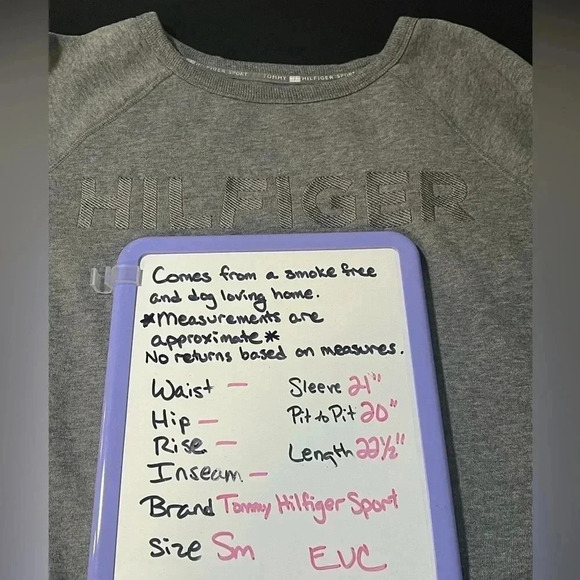 FIGER SPORT TOMMY HILFIGER SPORT
HILFIGER
Comes from a smoke free
and dog loving home.
*Measurements are
approximate*
No returns based on measures.
Waist - Sleeve 21"
Hip - Pit to Pit 20"
Rise - Length 22½"
Inseam -
Brand Tommy Hilfiger Sport
Size Sm EUC